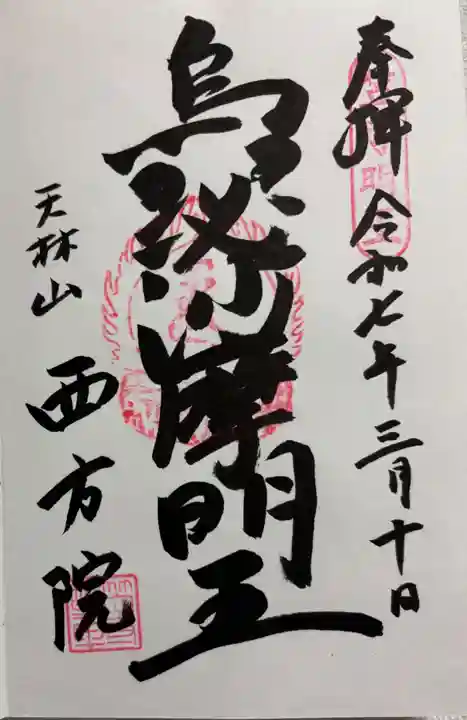 奉拝 令和七年三月十日
烏瑟沙摩明王
天林山 西方院